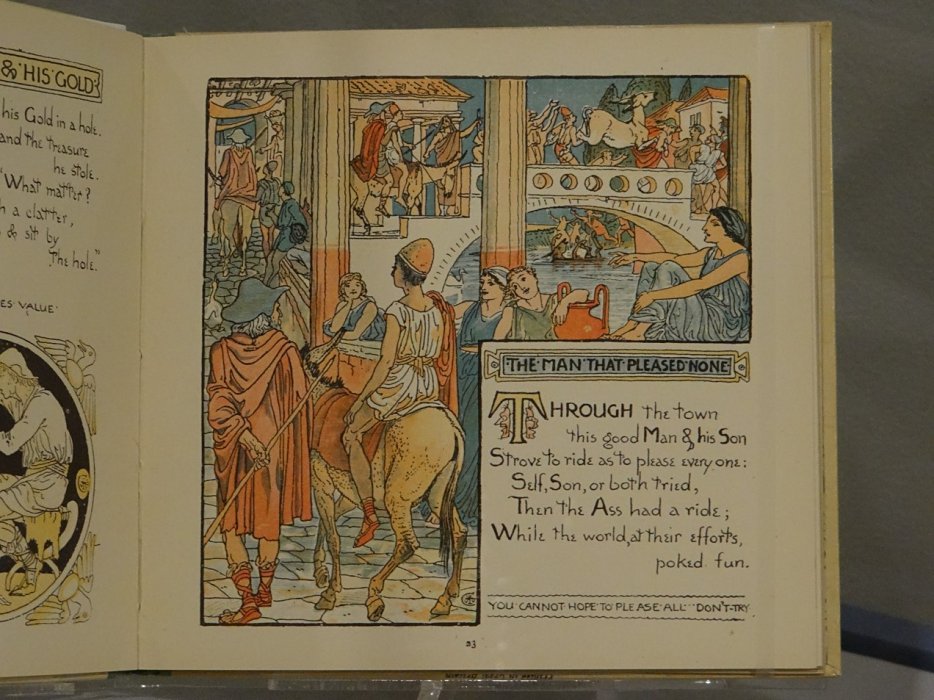 & HIS GOLD
his Gold in a hole.
and the treasure
he stole.
"What matter?
a clatter,
& sit by
the hole."
VALUE
THE MAN THAT PLEASED NONE
THROUGH the town
this good Man & his Son
Strove to ride as to please every one:
Self, Son, or both tried,
Then the Ass had a ride;
While the world, at their efforts,
poked fun.
YOU CANNOT HOPE TO PLEASE ALL — DON'T TRY
53